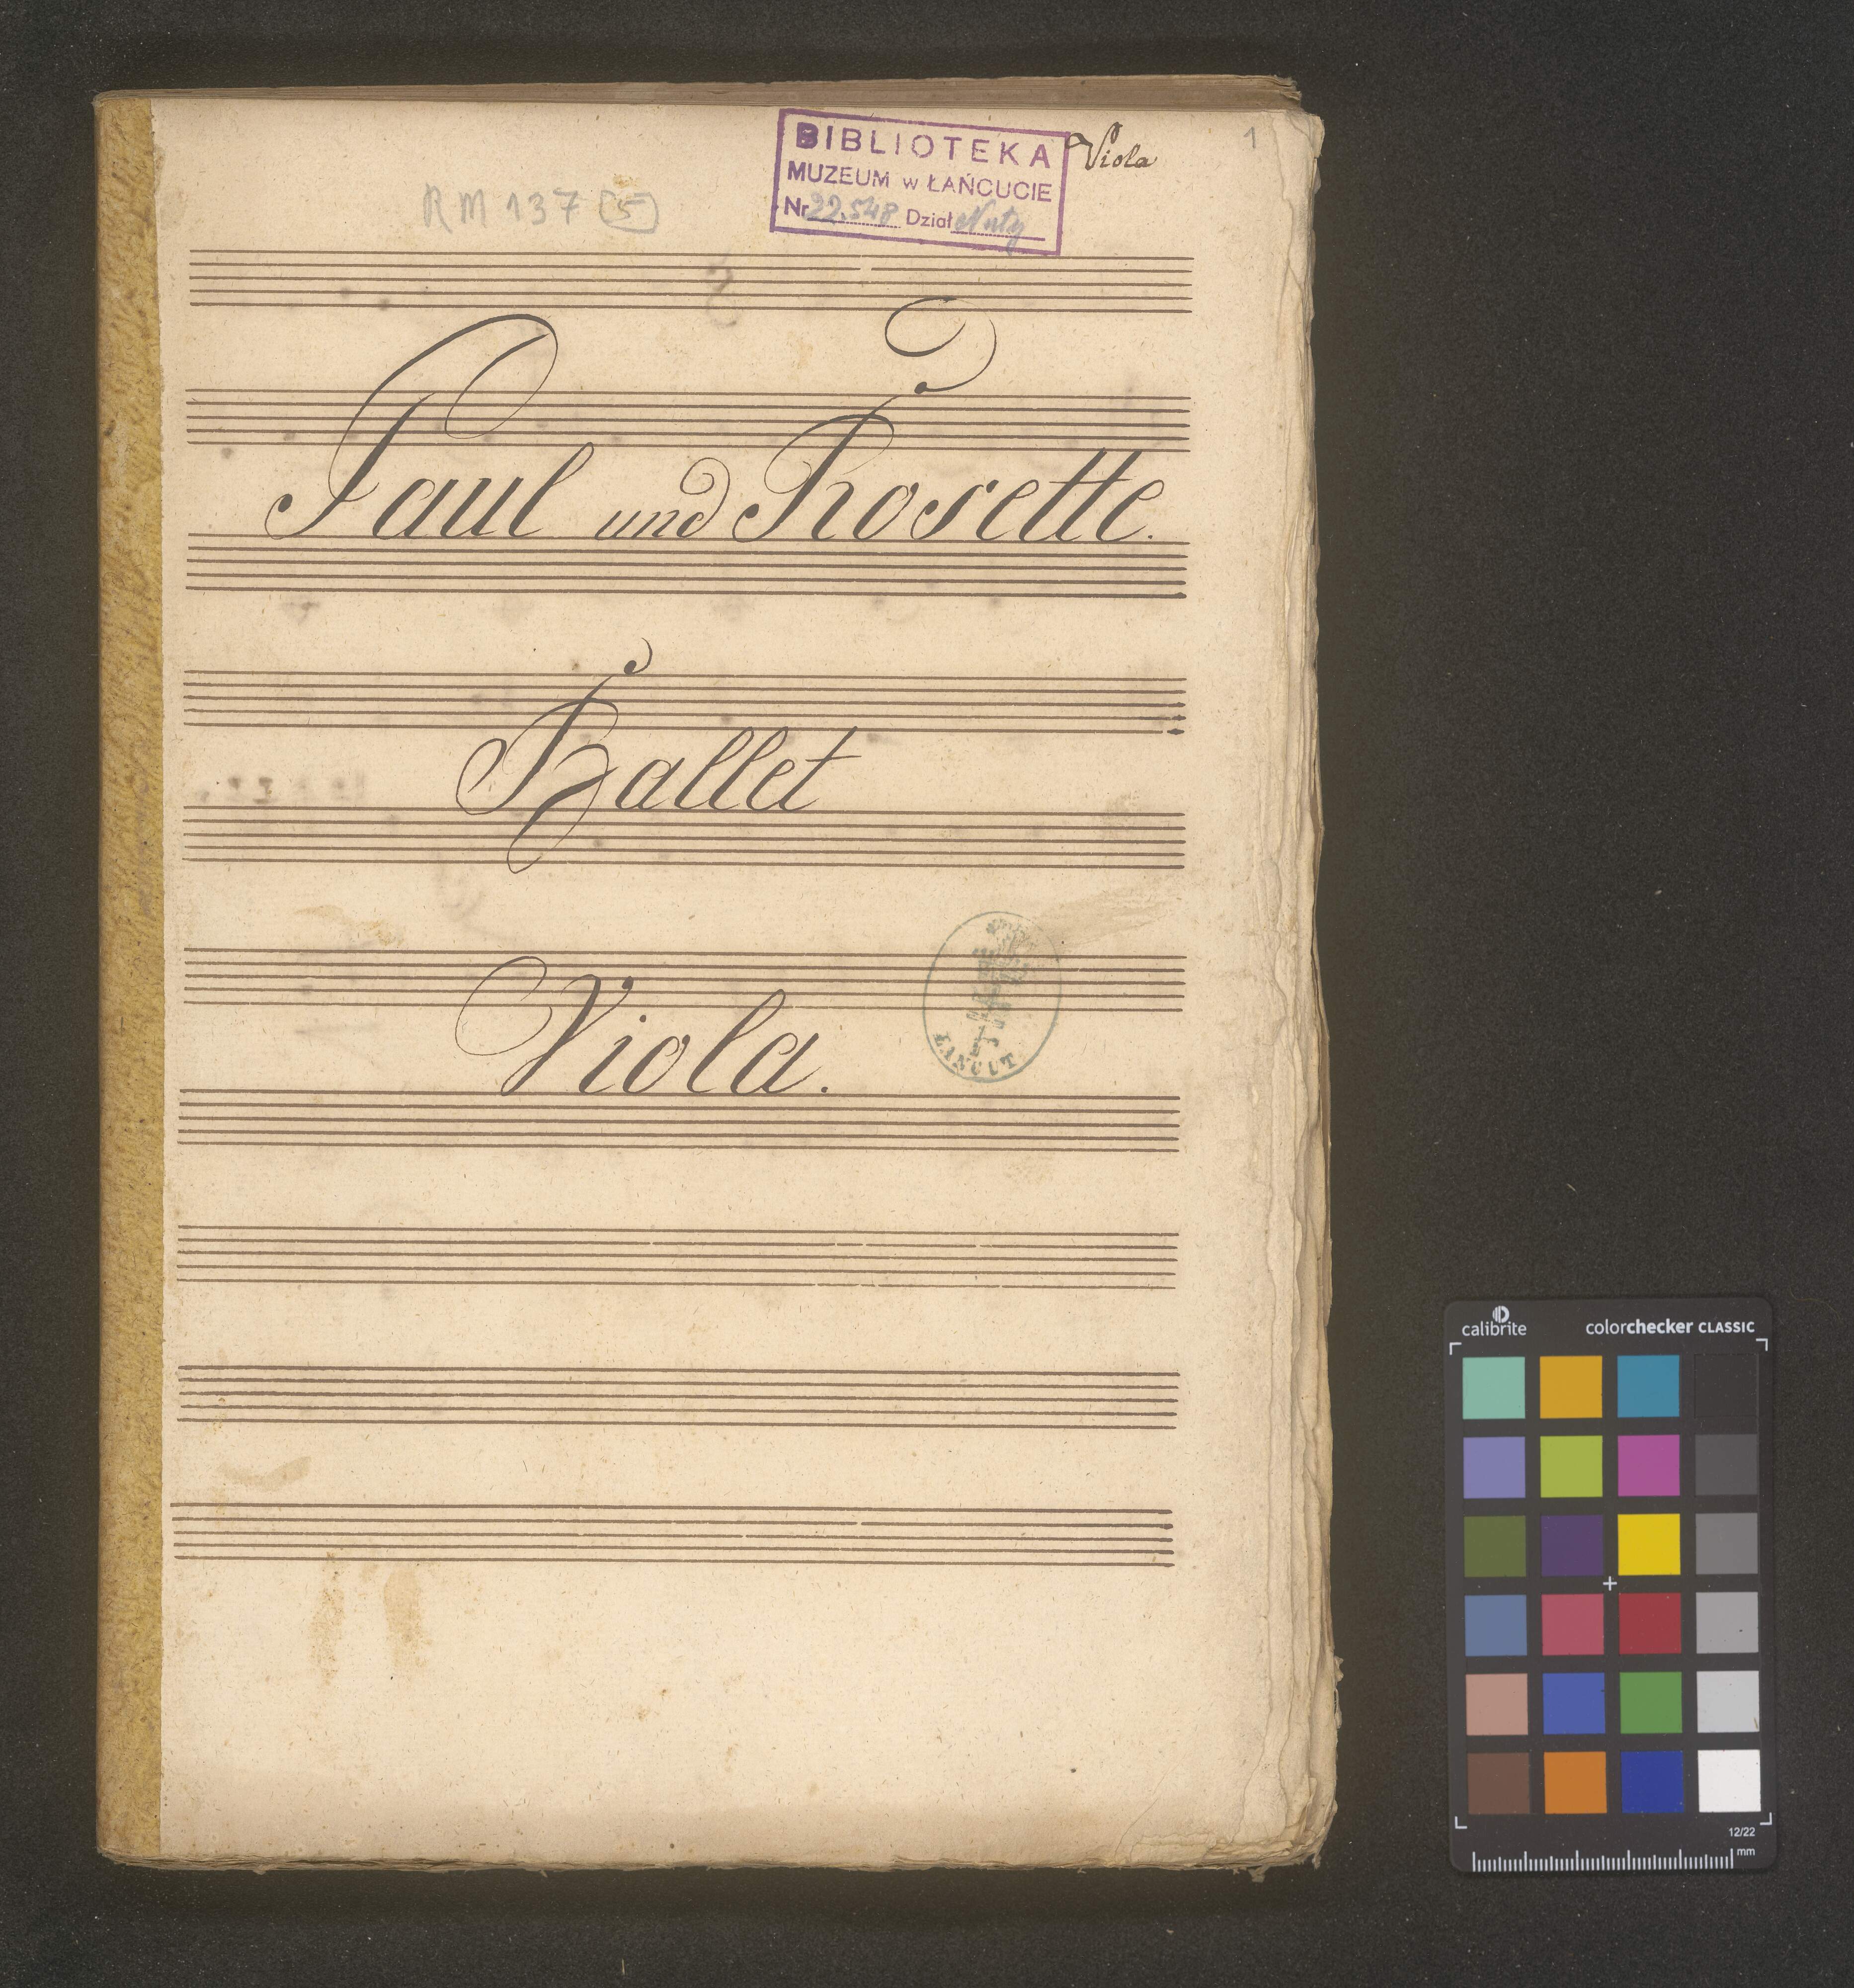 Viola 1
BIBLIOTEKA
MUZEUM w ŁAŃCUCIE
Nr 22.548 Dział Nuty
RM 137 [5]
Paul und Rosette.
Ballet
Viola.
ŁAŃCUT
calibrite colorchecker CLASSIC
12/22
mm